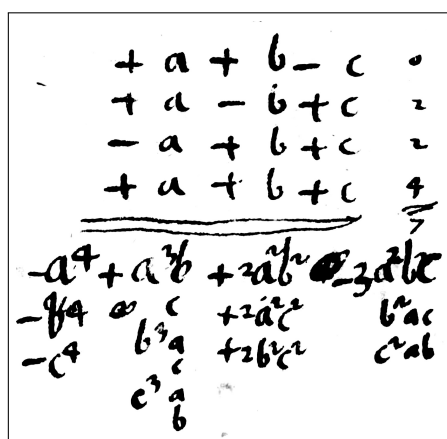 + a + b - c 0
+ a - b + c 2
- a + b + c 2
+ a + b + c 4
-a⁴ + a³b + 2a²b² - 3a²bc
-b⁴ c +2a²c² b²ac
-c⁴ b³a +2b²c² c²ab
c
c³a
b